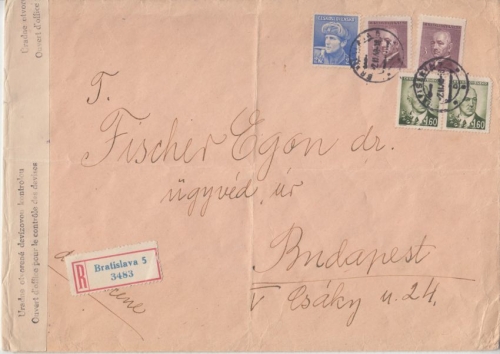 Úradne otvorené devízovou kontrolou
Ouvert d'office pour le contrôle des devises
Úradne otvor
Ouvert d'office
ČESKOSLOVENSKO
T.
Fischer Egon dr.
ügyvéd úr
Budapest
V Csáky u. 24.
R
Bratislava 5
3483
1.60
1.60